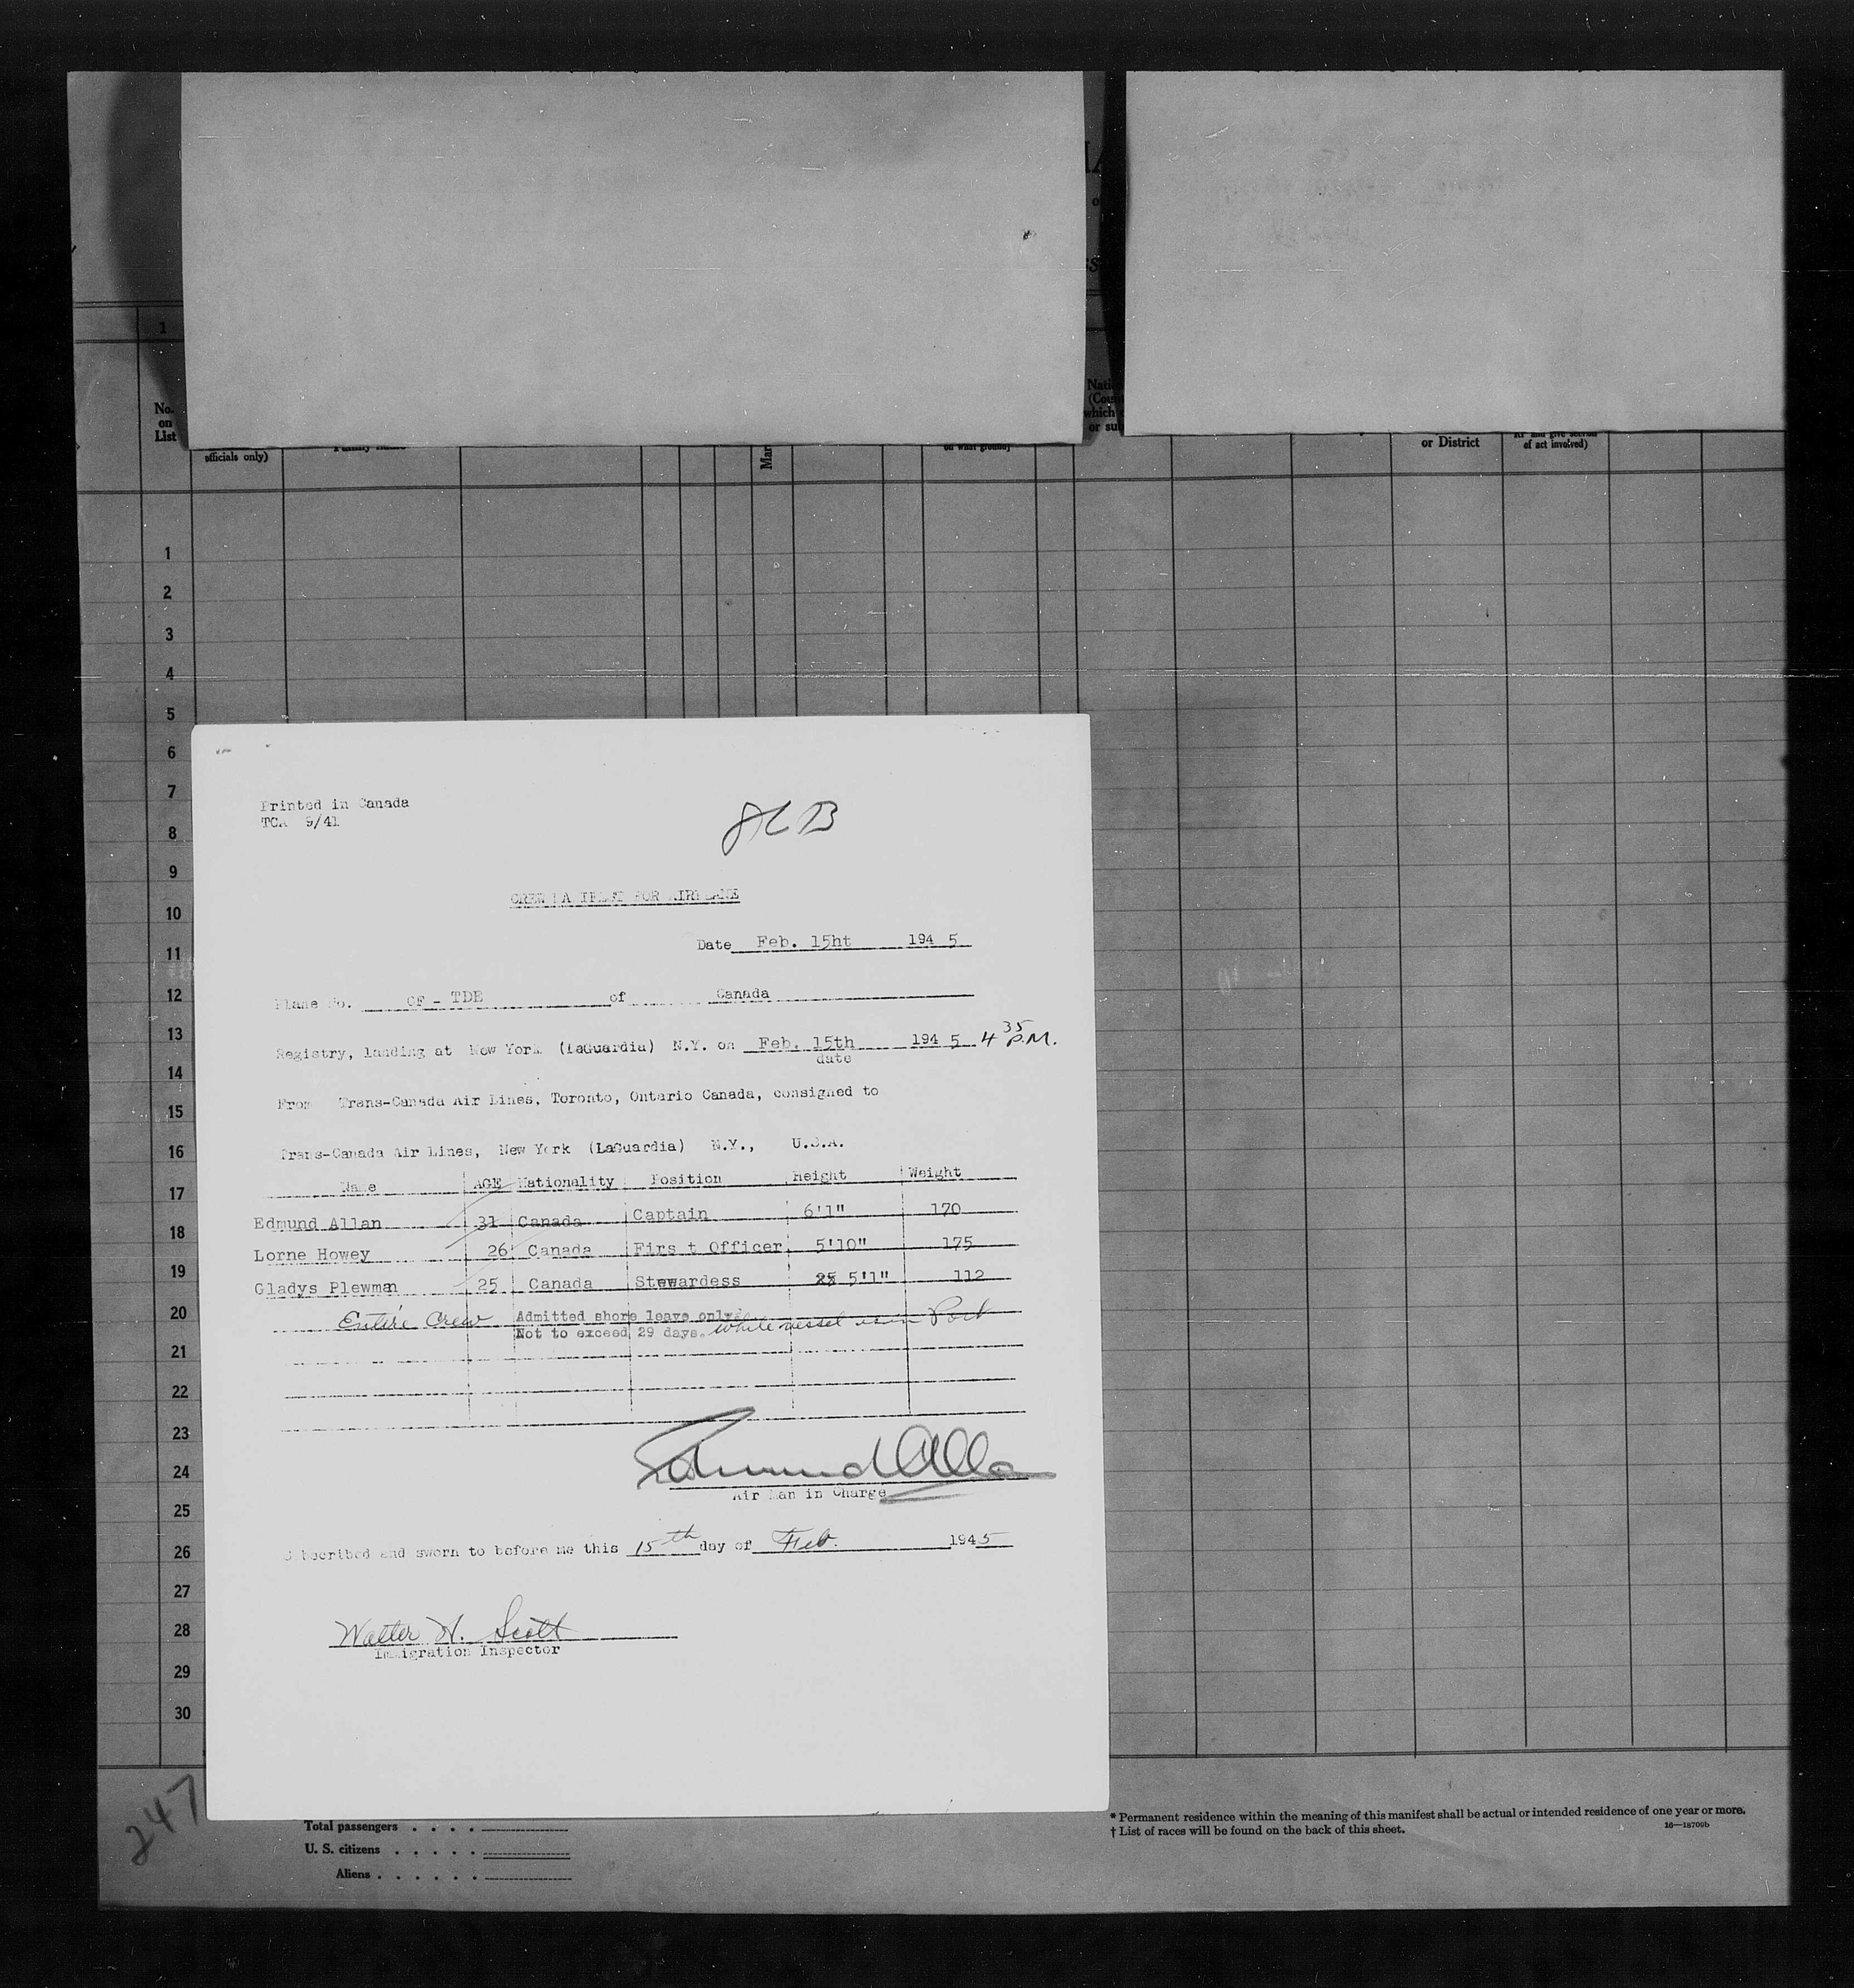 1
No.
on
List
officials only)
Mar
Nati
(Coun
which
or su
or District
of act involved)
1
2
3
4
5
6
7
8
9
10
11
12
13
14
15
16
17
18
19
20
21
22
23
24
25
26
27
28
29
30
Printed in Canada
TCA 9/41
CREW MANIFEST FOR AIRPLANE
Date Feb. 15ht 194 5
Plane No. CF - TDE of Canada
Registry, landing at New York (LaGuardia) N.Y. on Feb. 15th 194 5 4 35 P.M.
date
From Trans-Canada Air Lines, Toronto, Ontario Canada, consigned to
Trans-Canada Air Lines, New York (LaGuardia) N.Y., U.S.A.
Name AGE Nationality Position Height Weight
Edmund Allan 31 Canada Captain 6'1" 170
Lorne Howey 26 Canada Firs t Officer 5'10" 175
Gladys Plewman 25 Canada Stewardess 5'1" 112
Entire Crew Admitted shore leave only
Not to exceed 29 days. while vessel is in Port
Edmund Allan
Air Man in Charge
Subscribed and sworn to before me this 15th day of Feb. 1945
Walter H. Scott
Immigration Inspector
247
Total passengers . . . .
U. S. citizens . . . . .
Aliens . . . . . .
* Permanent residence within the meaning of this manifest shall be actual or intended residence of one year or more.
† List of races will be found on the back of this sheet.
16—18700b